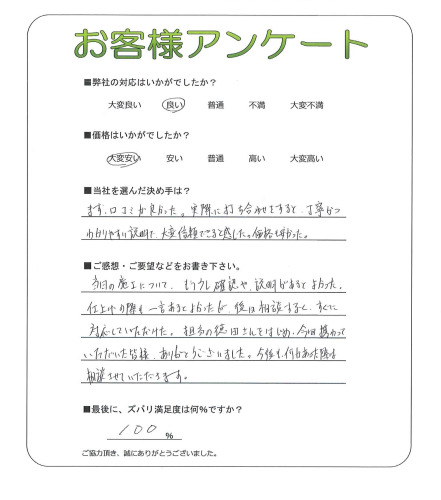 お客様アンケート
■弊社の対応はいかがでしたか？
大変良い 良い 普通 不満 大変不満
■価格はいかがでしたか？
大変安い 安い 普通 高い 大変高い
■当社を選んだ決め手は？
まず、口コミが良かった。実際に打ち合わせをすると、丁寧かつ
わかりやすい説明で、大変信頼できると感じた。価格も安かった。
■ご感想・ご要望などをお書き下さい。
当日の施工について、もう少し確認や、説明があるとよかった。
仕上げの際も一言あるとよかったが、後は相談するく、すぐに
対応していただけた。担当の徳田さんをはじめ、今回携わって
いただいた皆様、ありがとうございました。今後も、何かあった際は
相談させていただきます。
■最後に、ズバリ満足度は何%ですか？
100 %
ご協力頂き、誠にありがとうございました。